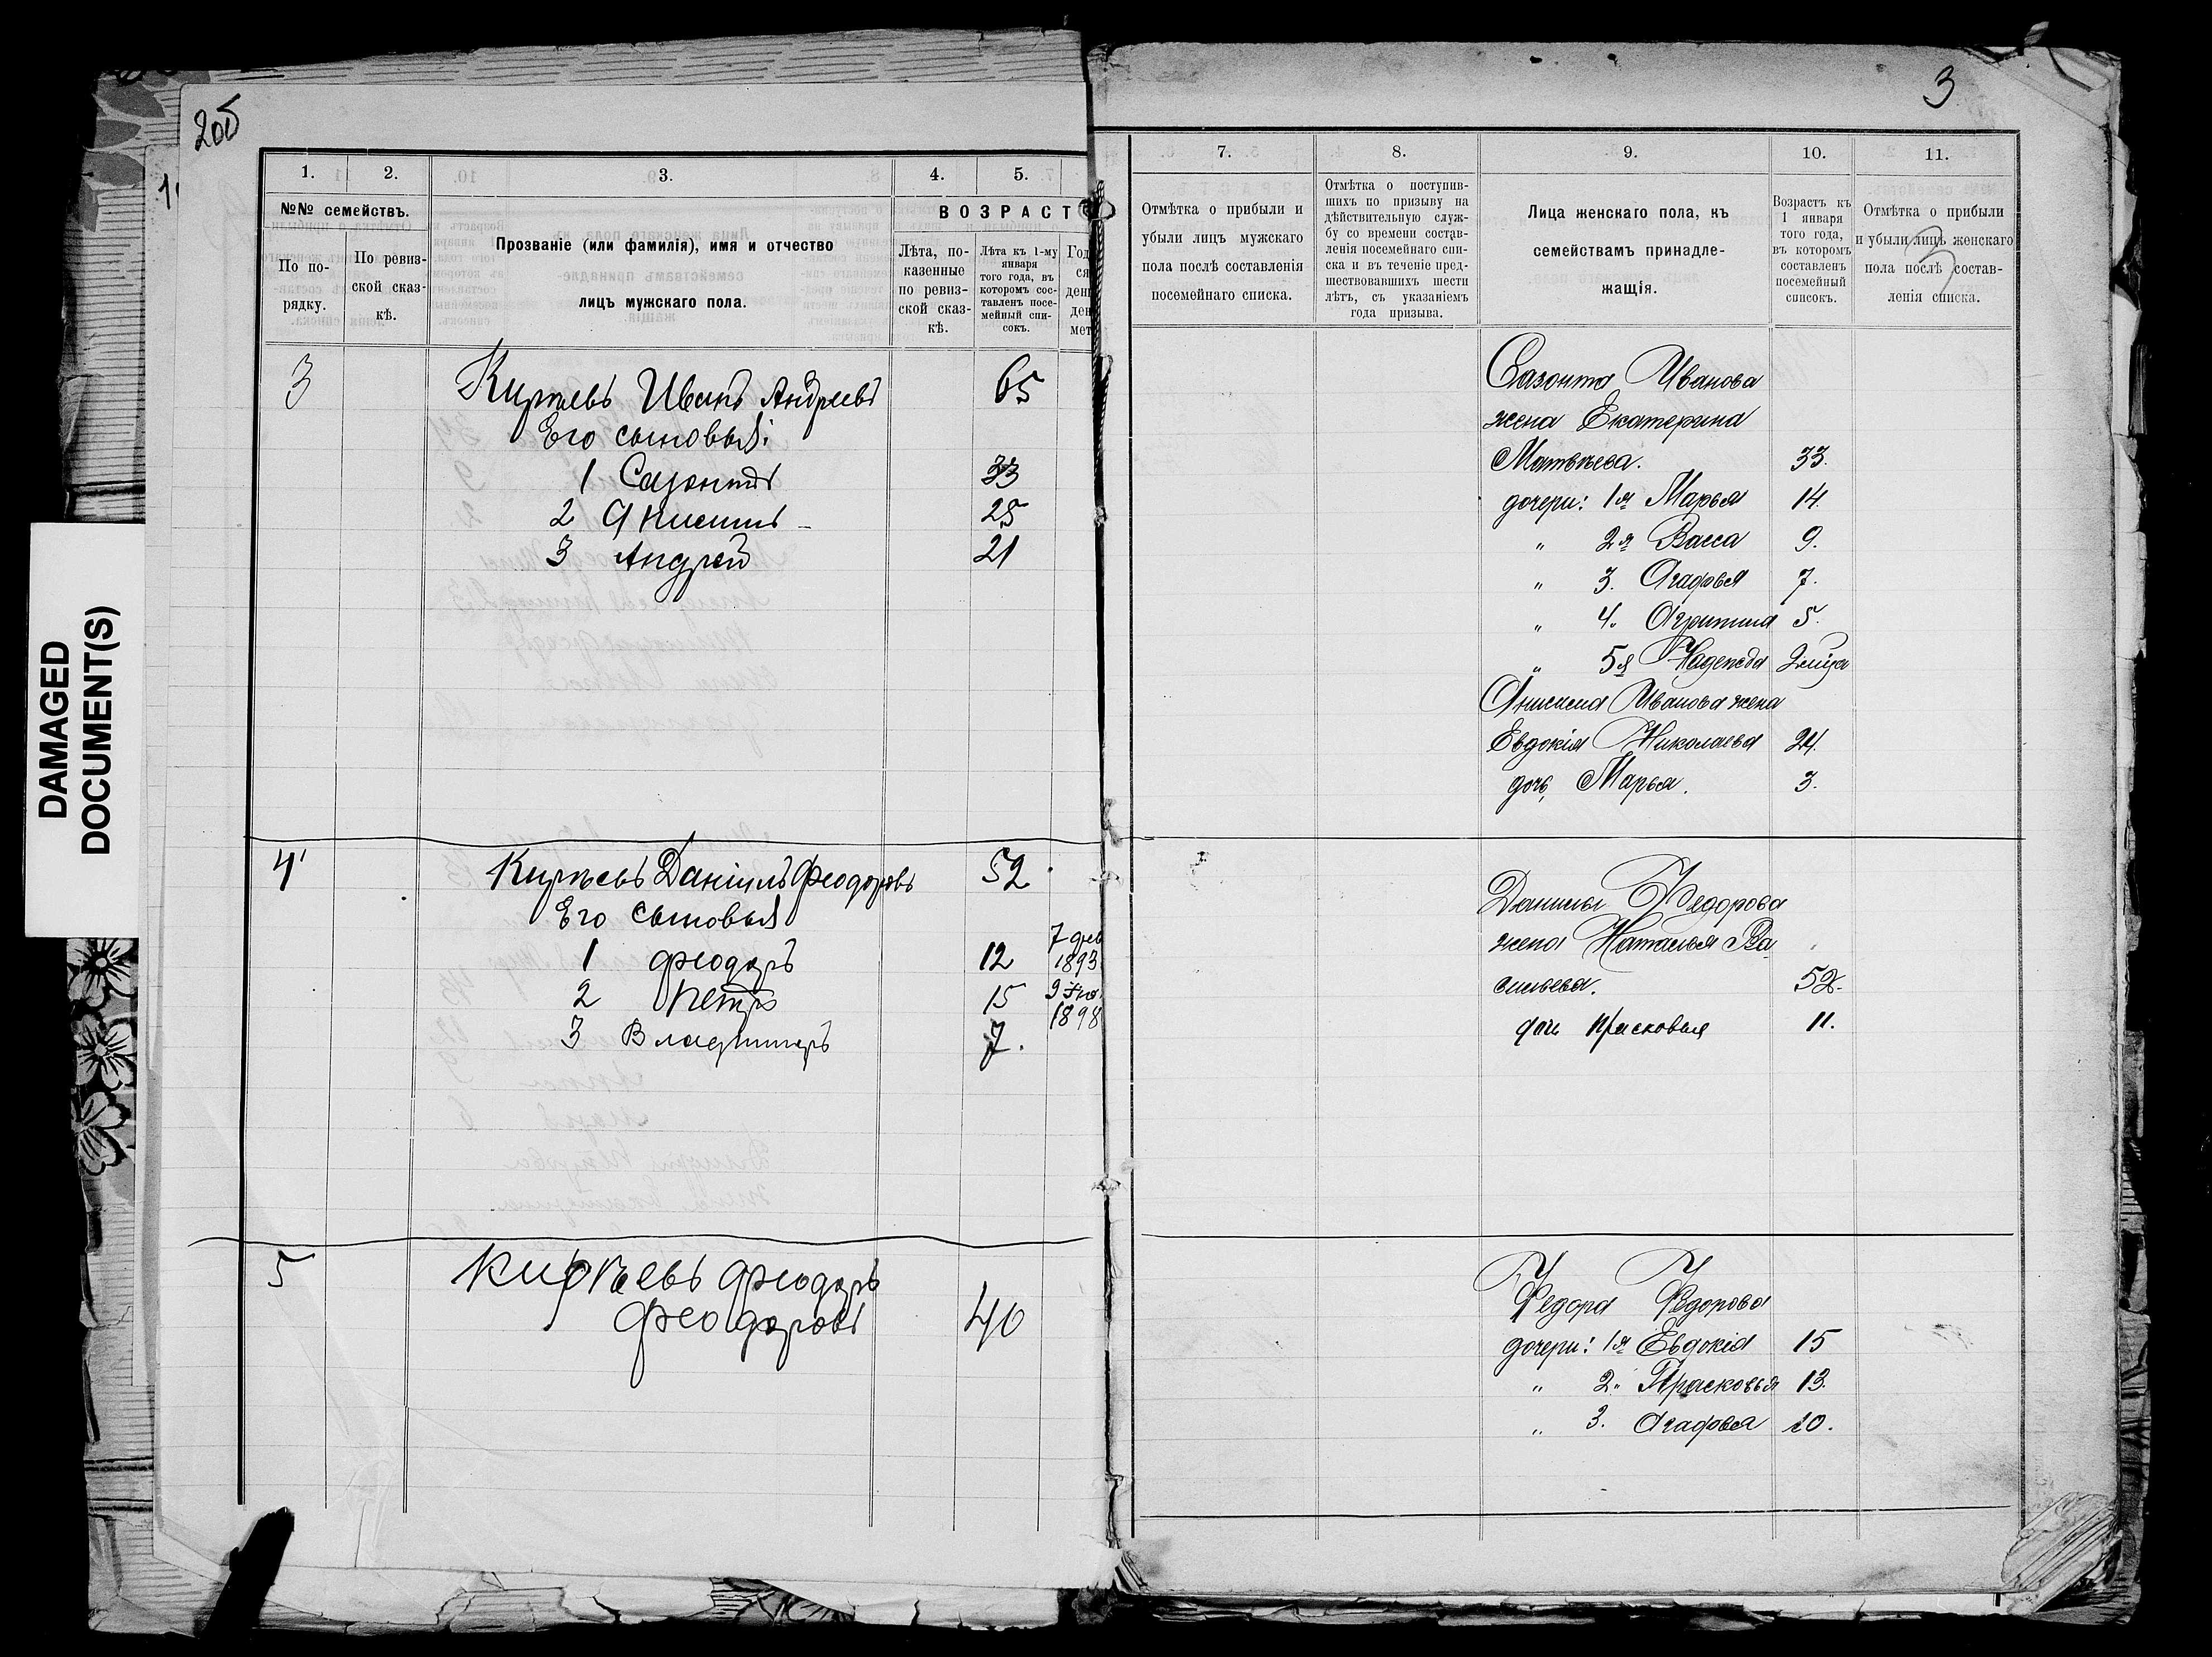 2об
3
DAMAGED
DOCUMENT(S)
1. 2. 3. 4. 5.
№№ семействъ.
По по-
рядку.
По ревиз-
ской сказ-
кѣ.
Прозваніе (или фамилія), имя и отчество
лицъ мужскаго пола.
ВОЗРАСТ
Лѣта, по-
казенные
по ревиз-
ской сказ-
кѣ.
Лѣта къ 1-му
января
того года, въ
которомъ сос-
тавленъ посе-
мейный спи-
сокъ.
Год
ся
ден
ден
мет
3 Кирѣевъ Иванъ Андреевъ 65
Его сыновья:
1 Сазонтъ 33
2 Анисимъ 25
3 Андрей 21
4 Кирѣевъ Даніилъ Феодоровъ 52
Его сыновья
1 Феодоръ 12 7 фев 1893
2 Петръ 15
1898
3 Владимиръ 7.
5 Кирѣевъ Феодоръ
Феодоровъ 40
7. 8. 9. 10. 11.
Отмѣтка о прибыли и
убыли лицъ мужскаго
пола послѣ составленія
посемейнаго списка.
Отмѣтка о поступив-
шихъ по призыву на
дѣйствительную служ-
бу со времени состав-
ленія посемейнаго спи-
ска и въ теченіе пред-
шествовавшихъ шести
лѣтъ, съ указаніемъ
года призыва.
Лица женскаго пола, къ
семействамъ принадле-
жащія.
Возрастъ къ
1 января
того года,
въ которомъ
составленъ
посемейный
списокъ.
Отмѣтка о прибыли
и убыли лицъ женскаго
пола послѣ состав-
ленія списка.
3
Сазонта Иванова
жена Екатерина
Матвѣева. 33.
дочери: 1я Марья 14.
" 2я Васса 9.
" 3. Агафья 7.
" 4. Агрипина 5.
" 5я Надежда
Анисима Иванова жена
Евдокія Николаева 24.
дочь Марья. 3.
Данилы Федорова
жена Наталья Ва-
сильева. 52.
дочь Прасковья 11.
Федора Федорова
дочери: 1я Евдокія 15
" 2. Прасковья 13.
" 3. Агафья 10.